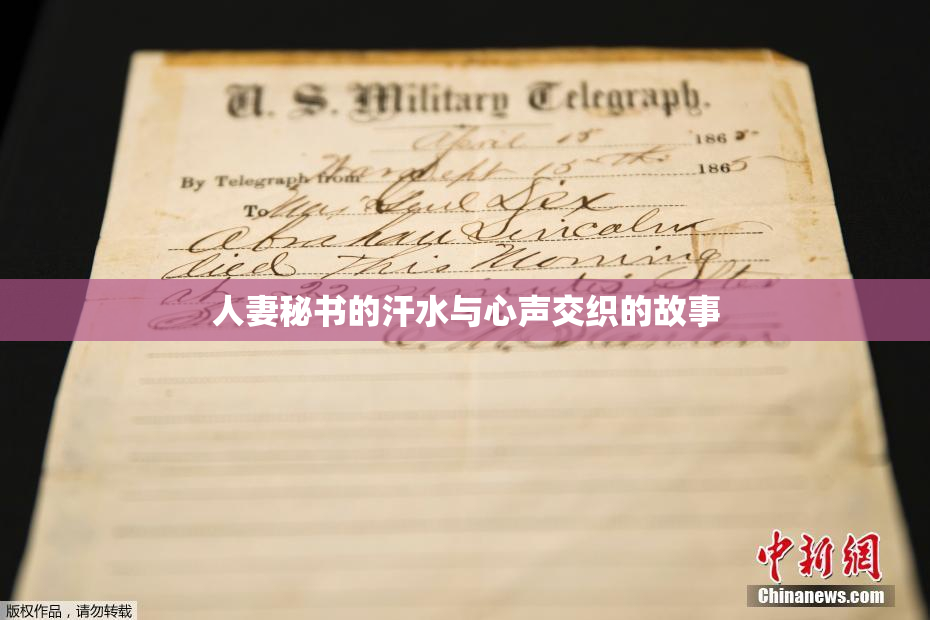 U. S. Military Telegraph.
April 15 1865
By Telegraph from War Dept 15th 1865
To Maj Genl Dix
Abraham Lincoln
died This Morning
at 22 minutes after
人妻秘书的汗水与心声交织的故事
E. M. Stanton
中新网
Chinanews.com
版权作品，请勿转载